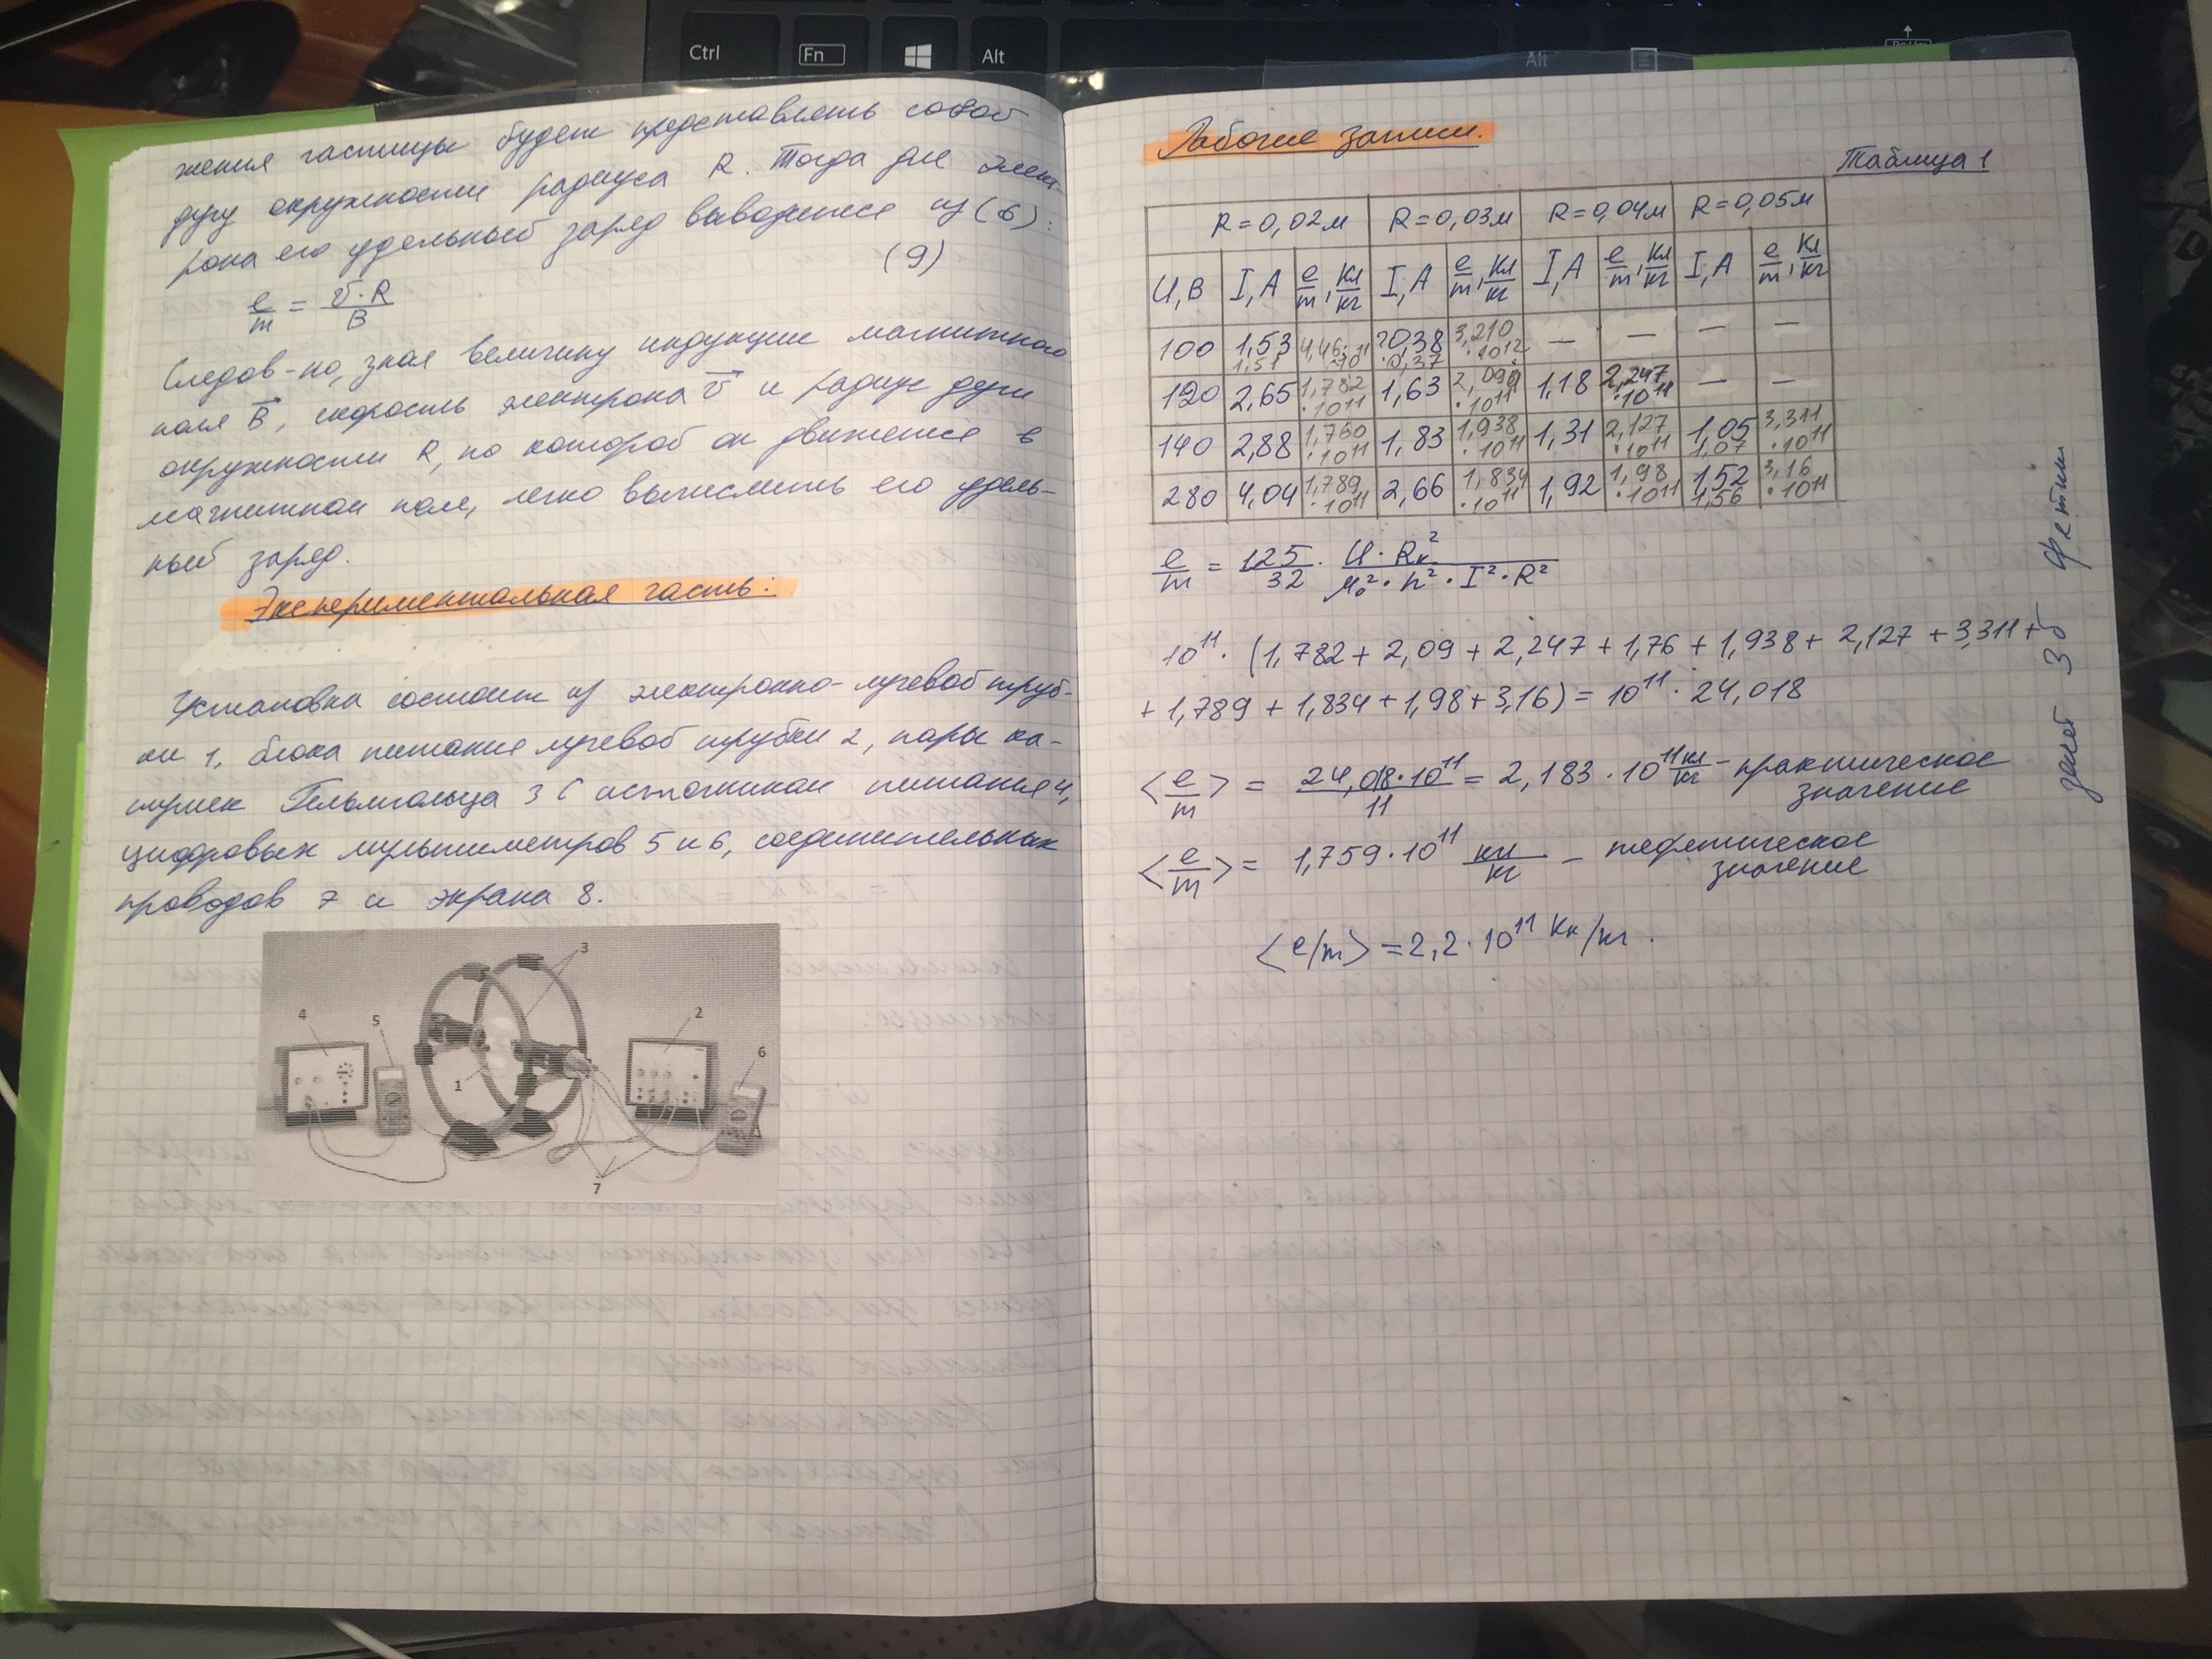 Ctrl
Fn
Alt
Alt
жения частицы будет представлять собой
дугу окружности радиуса R. Тогда для элект-
рона его удельный заряд выводится из (6):
e/m = v·R/B (9)
Следов-но, зная величину индукции магнитного
поля B, скорость электрона v и радиус дуги
окружности R, по которой он движется в
магнитном поле, легко вычислить его удель-
ный заряд.
Экспериментальная часть:
Установка состоит из электронно-лучевой труб-
ки 1, блока питания лучевой трубки 2, пары ка-
тушек Гельмгольца 3 с источником питания 4,
цифровых мультиметров 5 и 6, соединительных
проводов 7 и экрана 8.
3
4
5
2
6
1
7
Рабочие записи.
Таблица 1
R=0,02м R=0,03м R=0,04м R=0,05м
U,В I,А e/m, Кл/кг I,А e/m, Кл/кг I,А e/m, Кл/кг I,А e/m, Кл/кг
100 1,53 1,51 4,46·10^11 0,38 0,37 3,210·10^12 — — — —
120 2,65 1,782·10^11 1,63 2,090·10^11 1,18 2,247·10^11 — —
140 2,88 1,760·10^11 1,83 1,938·10^11 1,31 2,127·10^11 1,05 1,07 3,311·10^11
280 4,04 1,789·10^11 2,66 1,834·10^11 1,92 1,98·10^11 1,52 1,56 3,16·10^11
e/m = 125/32 · U·Rк²/μ₀²·n²·I²·R²
10^11·(1,782+2,09+2,247+1,76+1,938+2,127+3,311+
+1,789+1,834+1,98+3,16)=10^11·24,018
<e/m> = 24,018·10^11/11 = 2,183·10^11 Кл/кг – практическое
значение
<e/m> = 1,759·10^11 кл/кг – теоретическое
значение
<e/m> = 2,2·10^11 Кл/кг.
зачет 3б